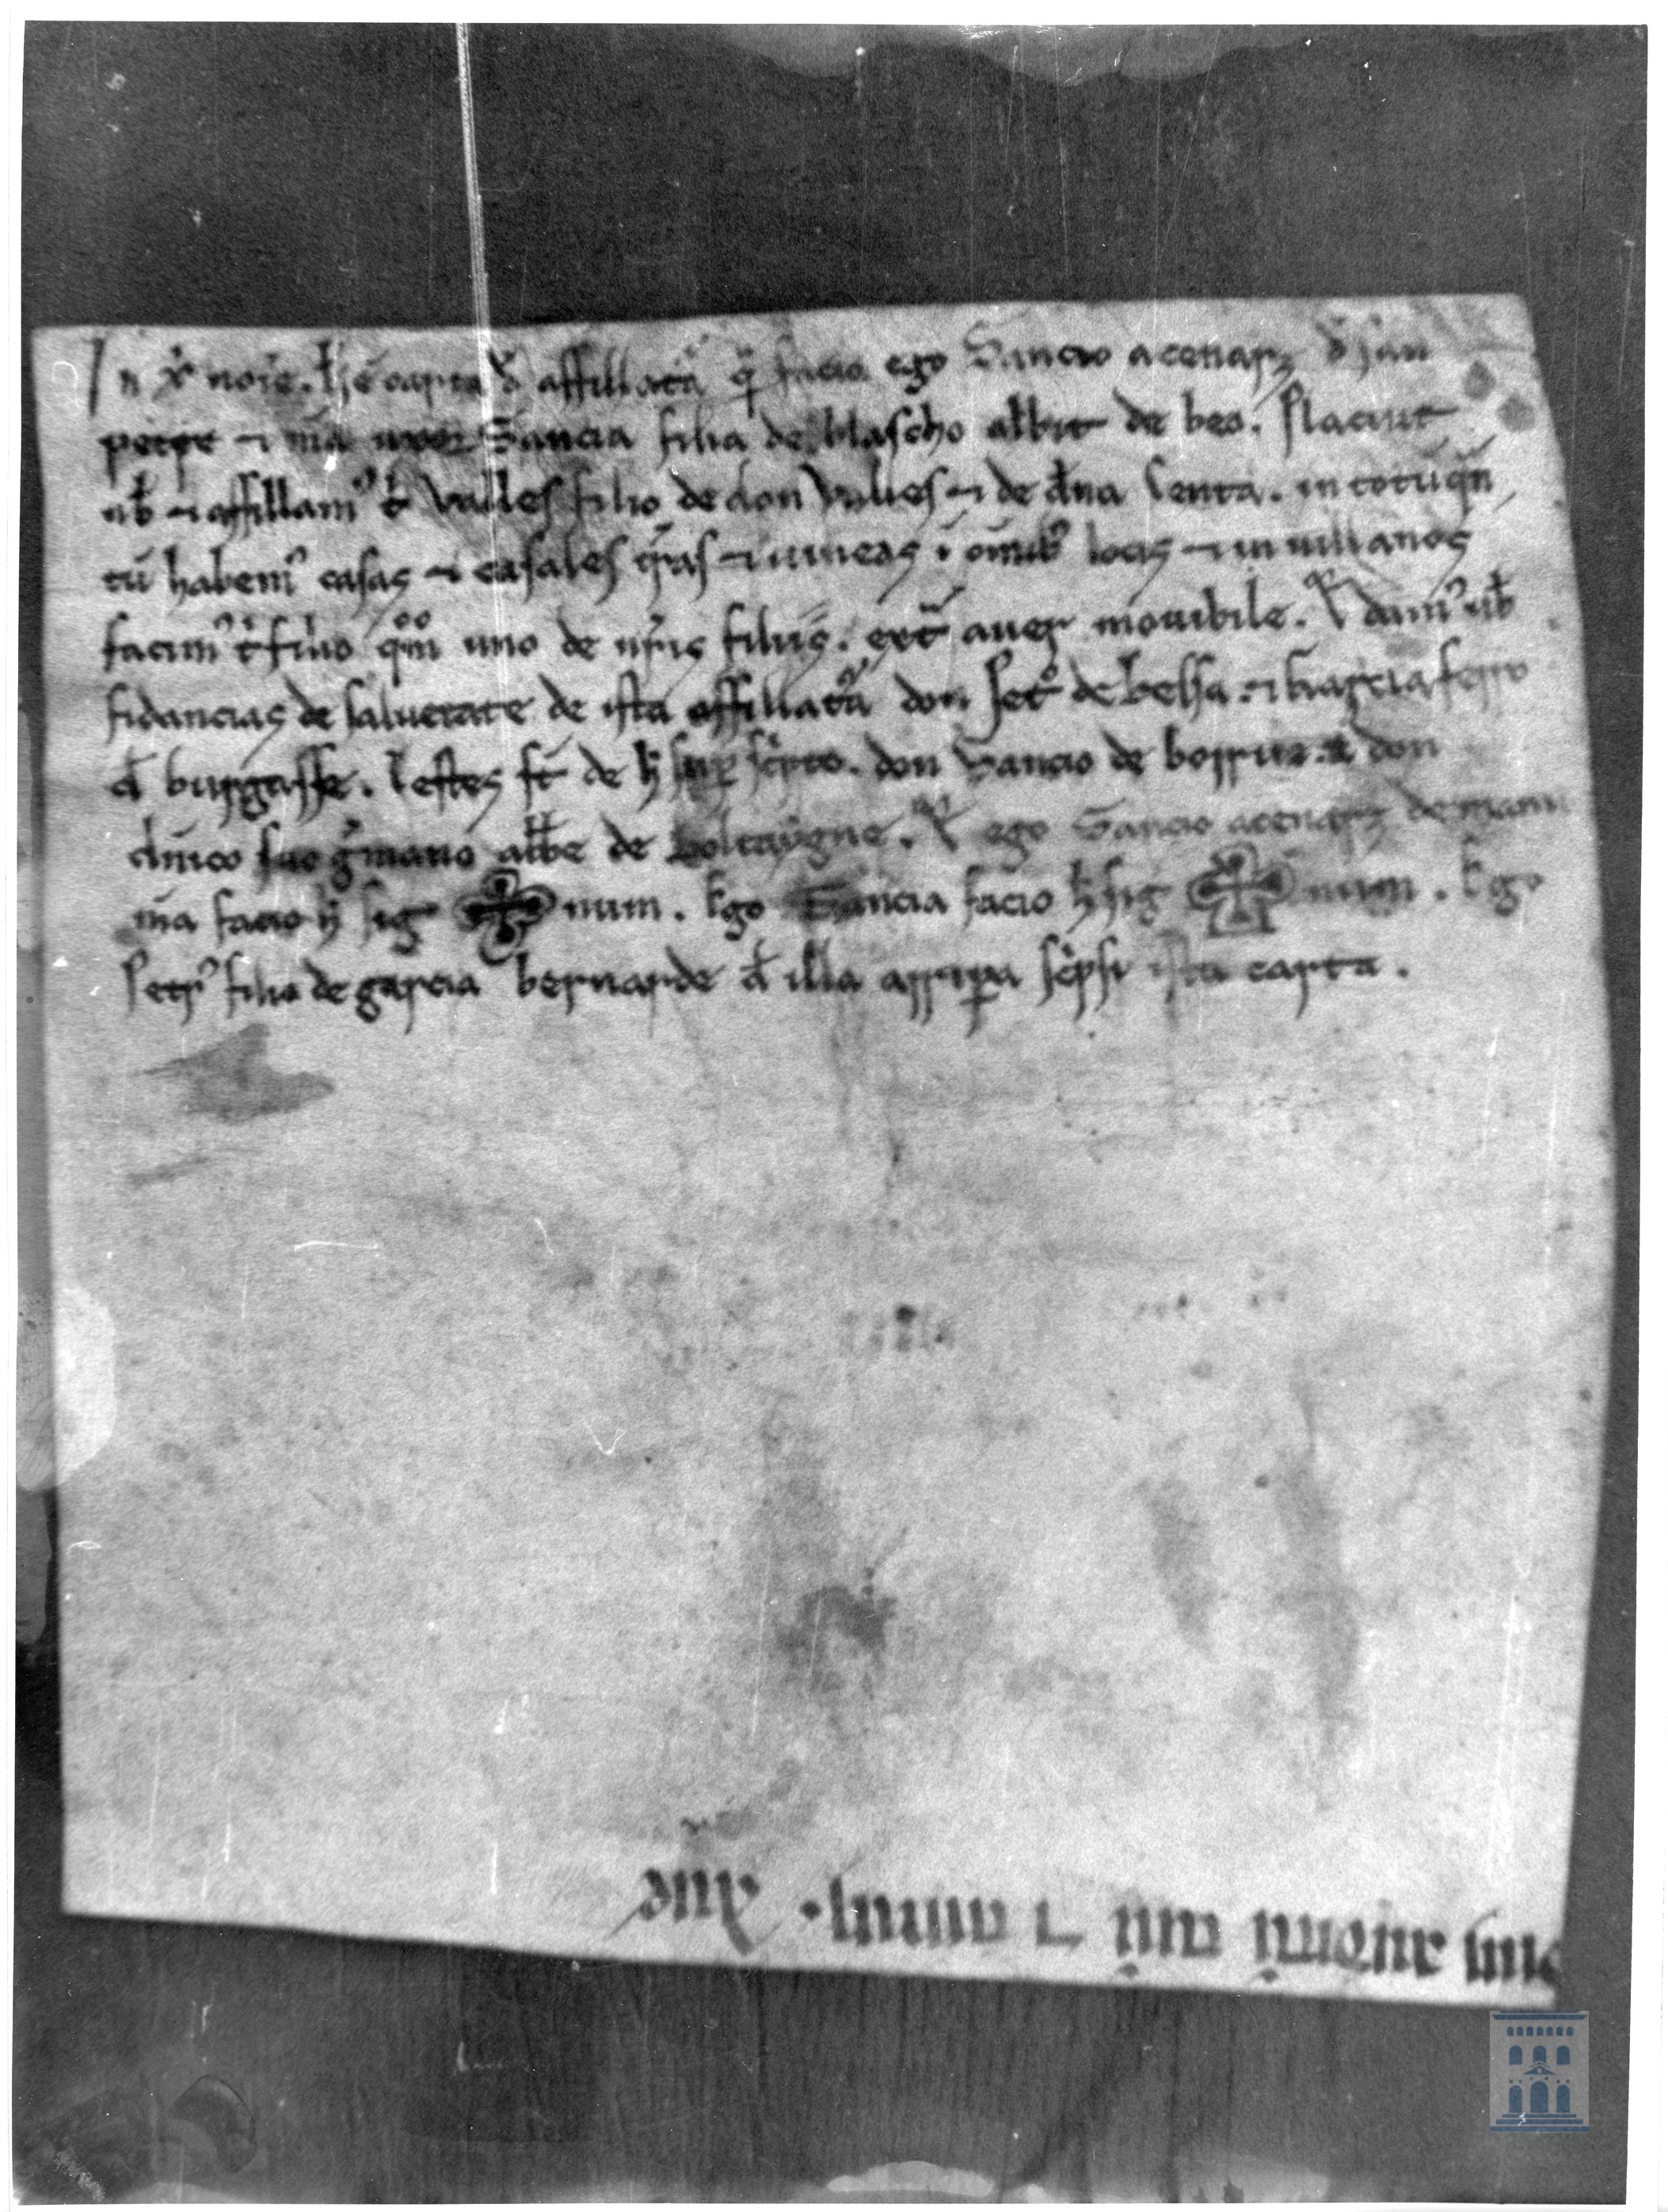 In xp̄i noīe. h̄ ē carta d̄ affillatura q̄ facio ego Sancio acenarz d̄ san
petre ⁊ m̄a uxor Sancia filia de blascho abbat de beo. Placuit
uob̄ ⁊ affillamꝰ t̄ Valles filio de don Valles ⁊ de dn̄a lenta. in totū qn̄
tū habemꝰ casas ⁊ casales t̄ras ⁊ uineas ī om̄ibꝰ locis ⁊ in uillanos
facimꝰ t̄ filio qͦmͦ uno de nr̄is filiis. ext̄ auer mouibile. ⁊ damꝰ uob̄
fidancias de saluetate de ista affillatura don Petꝰ de belsa. ⁊ Garcia ferro
d̄ burgasse. Testes st̄ de h̄ sup̄ sc̄pto. don Sancio de borruel ⁊ don
dn̄ico suo ḡmano abb̄e de boltangne. ⁊ ego Sancio acenarz de manu
m̄a facio h̄ sig num. Ego Sancia facio h̄ sig num. Ego
Petrꝰ filio de garcia bernarde d̄ illa arripa sc̄psi ista carta.